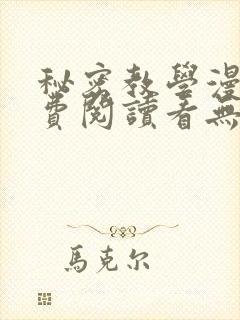 秘密教學漫
費閱讀看無
馬克尔